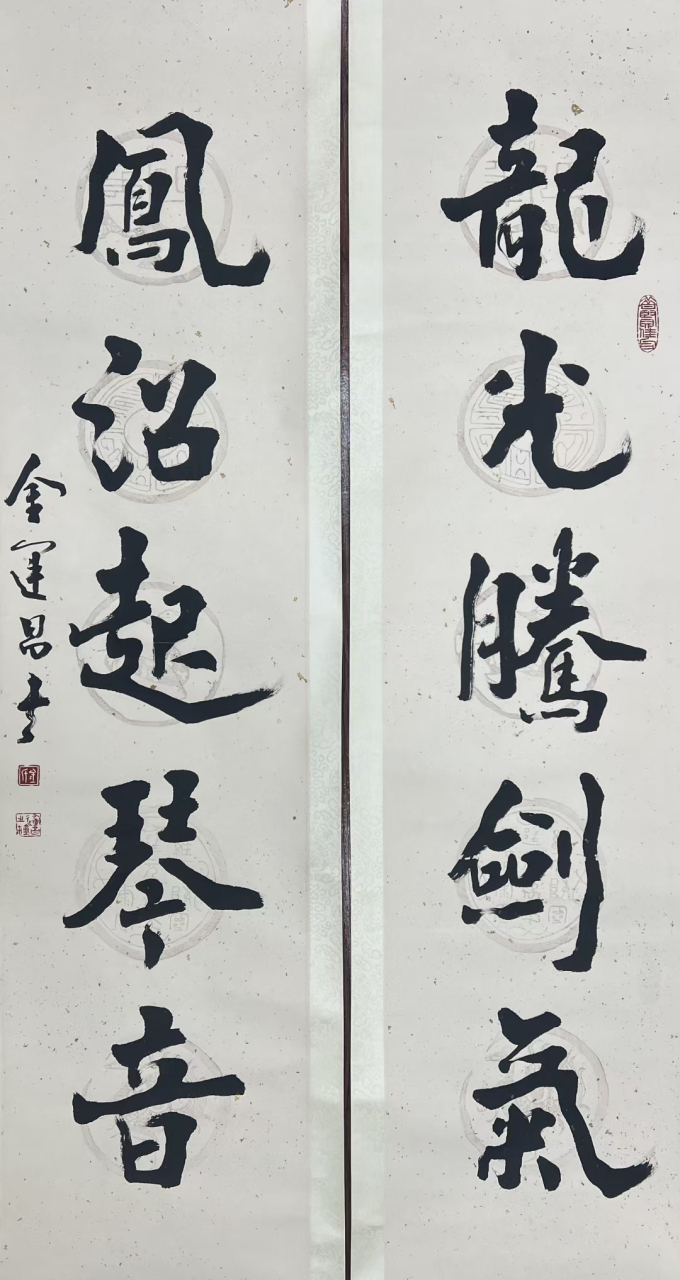 龍光騰劍氣
鳳沼起琴音
金運昌書